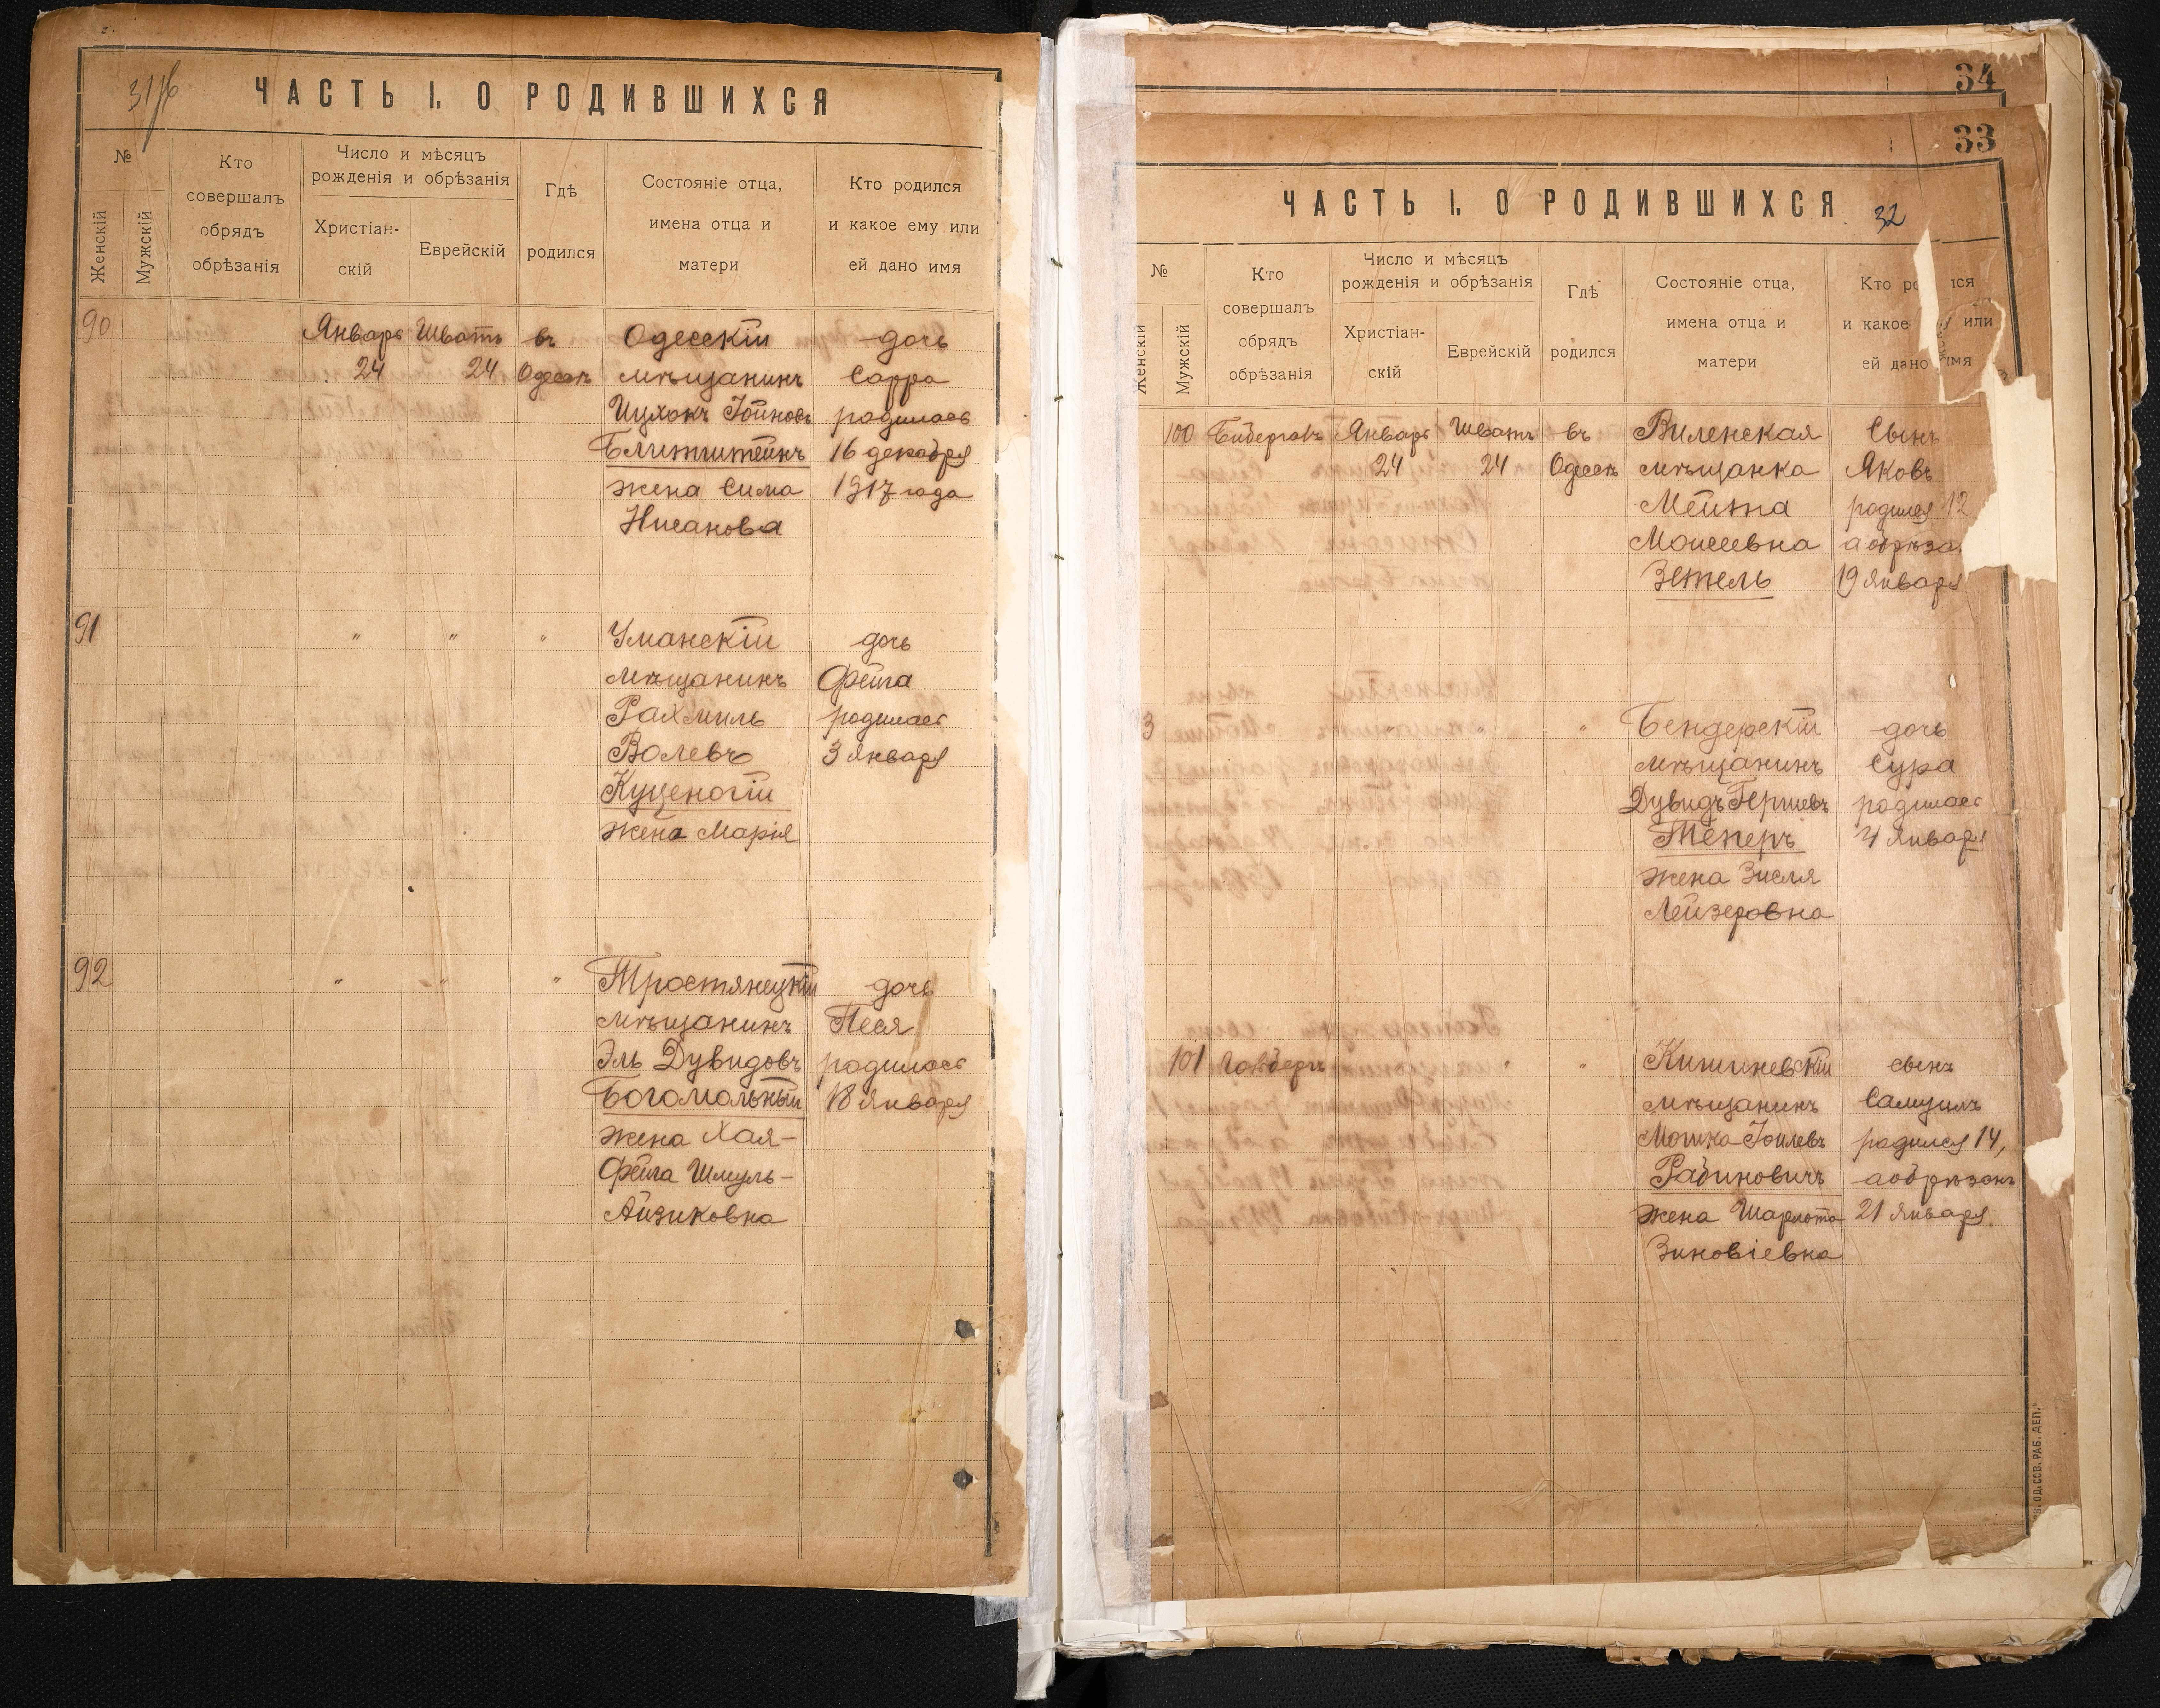 31/б
ЧАСТЬ I. О РОДИВШИХСЯ
№
Женскій
Мужскій
Кто совершалъ обрядъ обрѣзанія
Число и мѣсяцъ рожденія и обрѣзанія
Христіан-
скій
Еврейскій
Гдѣ родился
Состояніе отца, имена отца и матери
Кто родился и какое ему или ей дано имя
90 Январь Шватъ въ Одесскій дочь
24 24 Одессѣ мѣщанинъ Сарра
Ицхокъ Іойновъ родилась
16 декабря
жена Сима 1917 года
Нисанова
91 " " " Уманскій дочь
мѣщанинъ Фейга
Рахмиль родилась
Волевъ 3 Января
Куценогій
жена Марія
92 " " " Тростянецкій дочь
мѣщанинъ Песя
Эль Дувидовъ родилась
Богомольный 18 Января
жена Хая-
Фейга Шмуль-
Айзиковна
34
33
ЧАСТЬ I. О РОДИВШИХСЯ
32
№
Женскій
Мужскій
Кто совершалъ обрядъ обрѣзанія
Число и мѣсяцъ рожденія и обрѣзанія
Христіан-
скій
Еврейскій
Гдѣ родился
Состояніе отца, имена отца и матери
Кто ро ися и какое или ей дано имя
100 Январь Шватъ въ Виленская Сынъ
24 24 Одессѣ мѣщанка Яковъ
Мейта родился 12
Моисеевна а обрѣза
Зетель 19 Января
3 " Бендерскій дочь
мѣщанинъ Сура
Дувидъ Гершевъ родилась
Теперъ 4 Января
жена Зисля
Лейзеровна
101 " " Кишиневскій сынъ
мѣщанинъ Самуилъ
Мошка Іоилевъ родился 14,
Рабиновичъ а обрѣзанъ
жена Шарлота 21 Января
Зиновіевна
ОД. СОВ. РАБ. ДЕП."